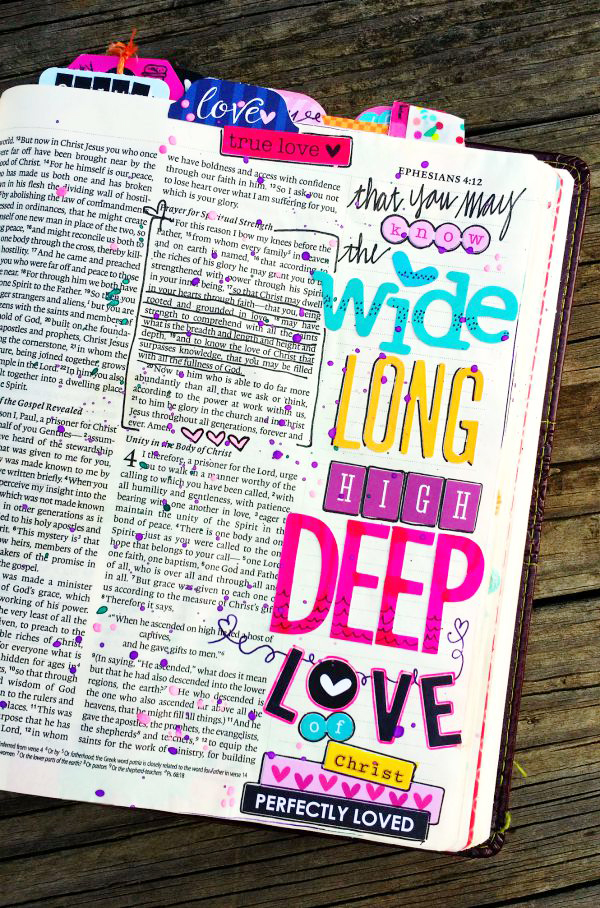 love
true love
world. 13But now in Christ Jesus you who once
were far off have been brought near by the
blood of Christ. 14For he himself is our peace,
who has made us both one and has broken
down in his flesh the dividing wall of hostil-
by abolishing the law of commandments
expressed in ordinances, that he might create
himself one new man in place of the two, so
making peace, 16and might reconcile us both to
one body through the cross, thereby kill-
hostility. 17And he came and preached
you who were far off and peace to those
near. 18For through him we both have
one Spirit to the Father. 19So then you
strangers and aliens, but you are
citizens with the saints and members of
household of God, 20built on the founda-
apostles and prophets, Christ Jesus
the cornerstone, 21in whom the
structure, being joined together, grows
temple in the Lord. 22In him you also
built together into a dwelling place
Spirit.
of the Gospel Revealed
reason I, Paul, a prisoner for Christ
behalf of you Gentiles— 2assum-
have heard of the stewardship
that was given to me for you,
mystery was made known to me by
have written briefly. 4When you
perceive my insight into the
which was not made known
in other generations as it
revealed to his holy apostles and
6This mystery is that
heirs, members of the
partakers of the promise in
the gospel.
was made a minister
of God's grace, which
working of his power.
the very least of all the
given, to preach to the
unsearchable riches of Christ,
for everyone what is
hidden for ages in
10so that through
wisdom of God
known to the rulers and
places. 11This was
purpose that he has
Lord, 12in whom
we have boldness and access with confidence
through our faith in him. 13So I ask you not
to lose heart over what I am suffering for you,
which is your glory.
Prayer for Spiritual Strength
14For this reason I bow my knees before the
Father, 15from whom every family in heaven
and on earth is named, 16that according to
the riches of his glory he may grant you to be
strengthened with power through his Spirit
in your inner being, 17so that Christ may dwell
in your hearts through faith—that you, being
rooted and grounded in love, 18may have
strength to comprehend with all the saints
what is the breadth and length and height and
depth, 19and to know the love of Christ that
surpasses knowledge, that you may be filled
with all the fullness of God.
20Now to him who is able to do far more
abundantly than all that we ask or think,
according to the power at work within us,
21to him be glory in the church and in Christ
Jesus throughout all generations, forever and
ever. Amen.
Unity in the Body of Christ
4 I therefore, a prisoner for the Lord, urge
you to walk in a manner worthy of the
calling to which you have been called, 2with
all humility and gentleness, with patience,
bearing with one another in love, 3eager
maintain the unity of the Spirit in the
bond of peace. 4There is one body and one
Spirit—just as you were called to the one
hope that belongs to your call— 5one Lord,
one faith, one baptism, 6one God and Father
of all, who is over all and through all and
in all. 7But grace was given to each one of
us according to the measure of Christ's gift.
8Therefore it says,
"When he ascended on high he led a host of
captives,
and he gave gifts to men."
9(In saying, "He ascended," what does it mean
but that he had also descended into the lower
regions, the earth? 10He who descended is
the one who also ascended far above all the
heavens, that he might fill all things.) 11And he
gave the apostles, the prophets, the evangelists,
the shepherds and teachers, 12to equip the
saints for the work of ministry, for building
EPHESIANS 4:12
that you may
know
the
wide
LONG
HIGH
DEEP
LOVE
of
Christ
PERFECTLY LOVED